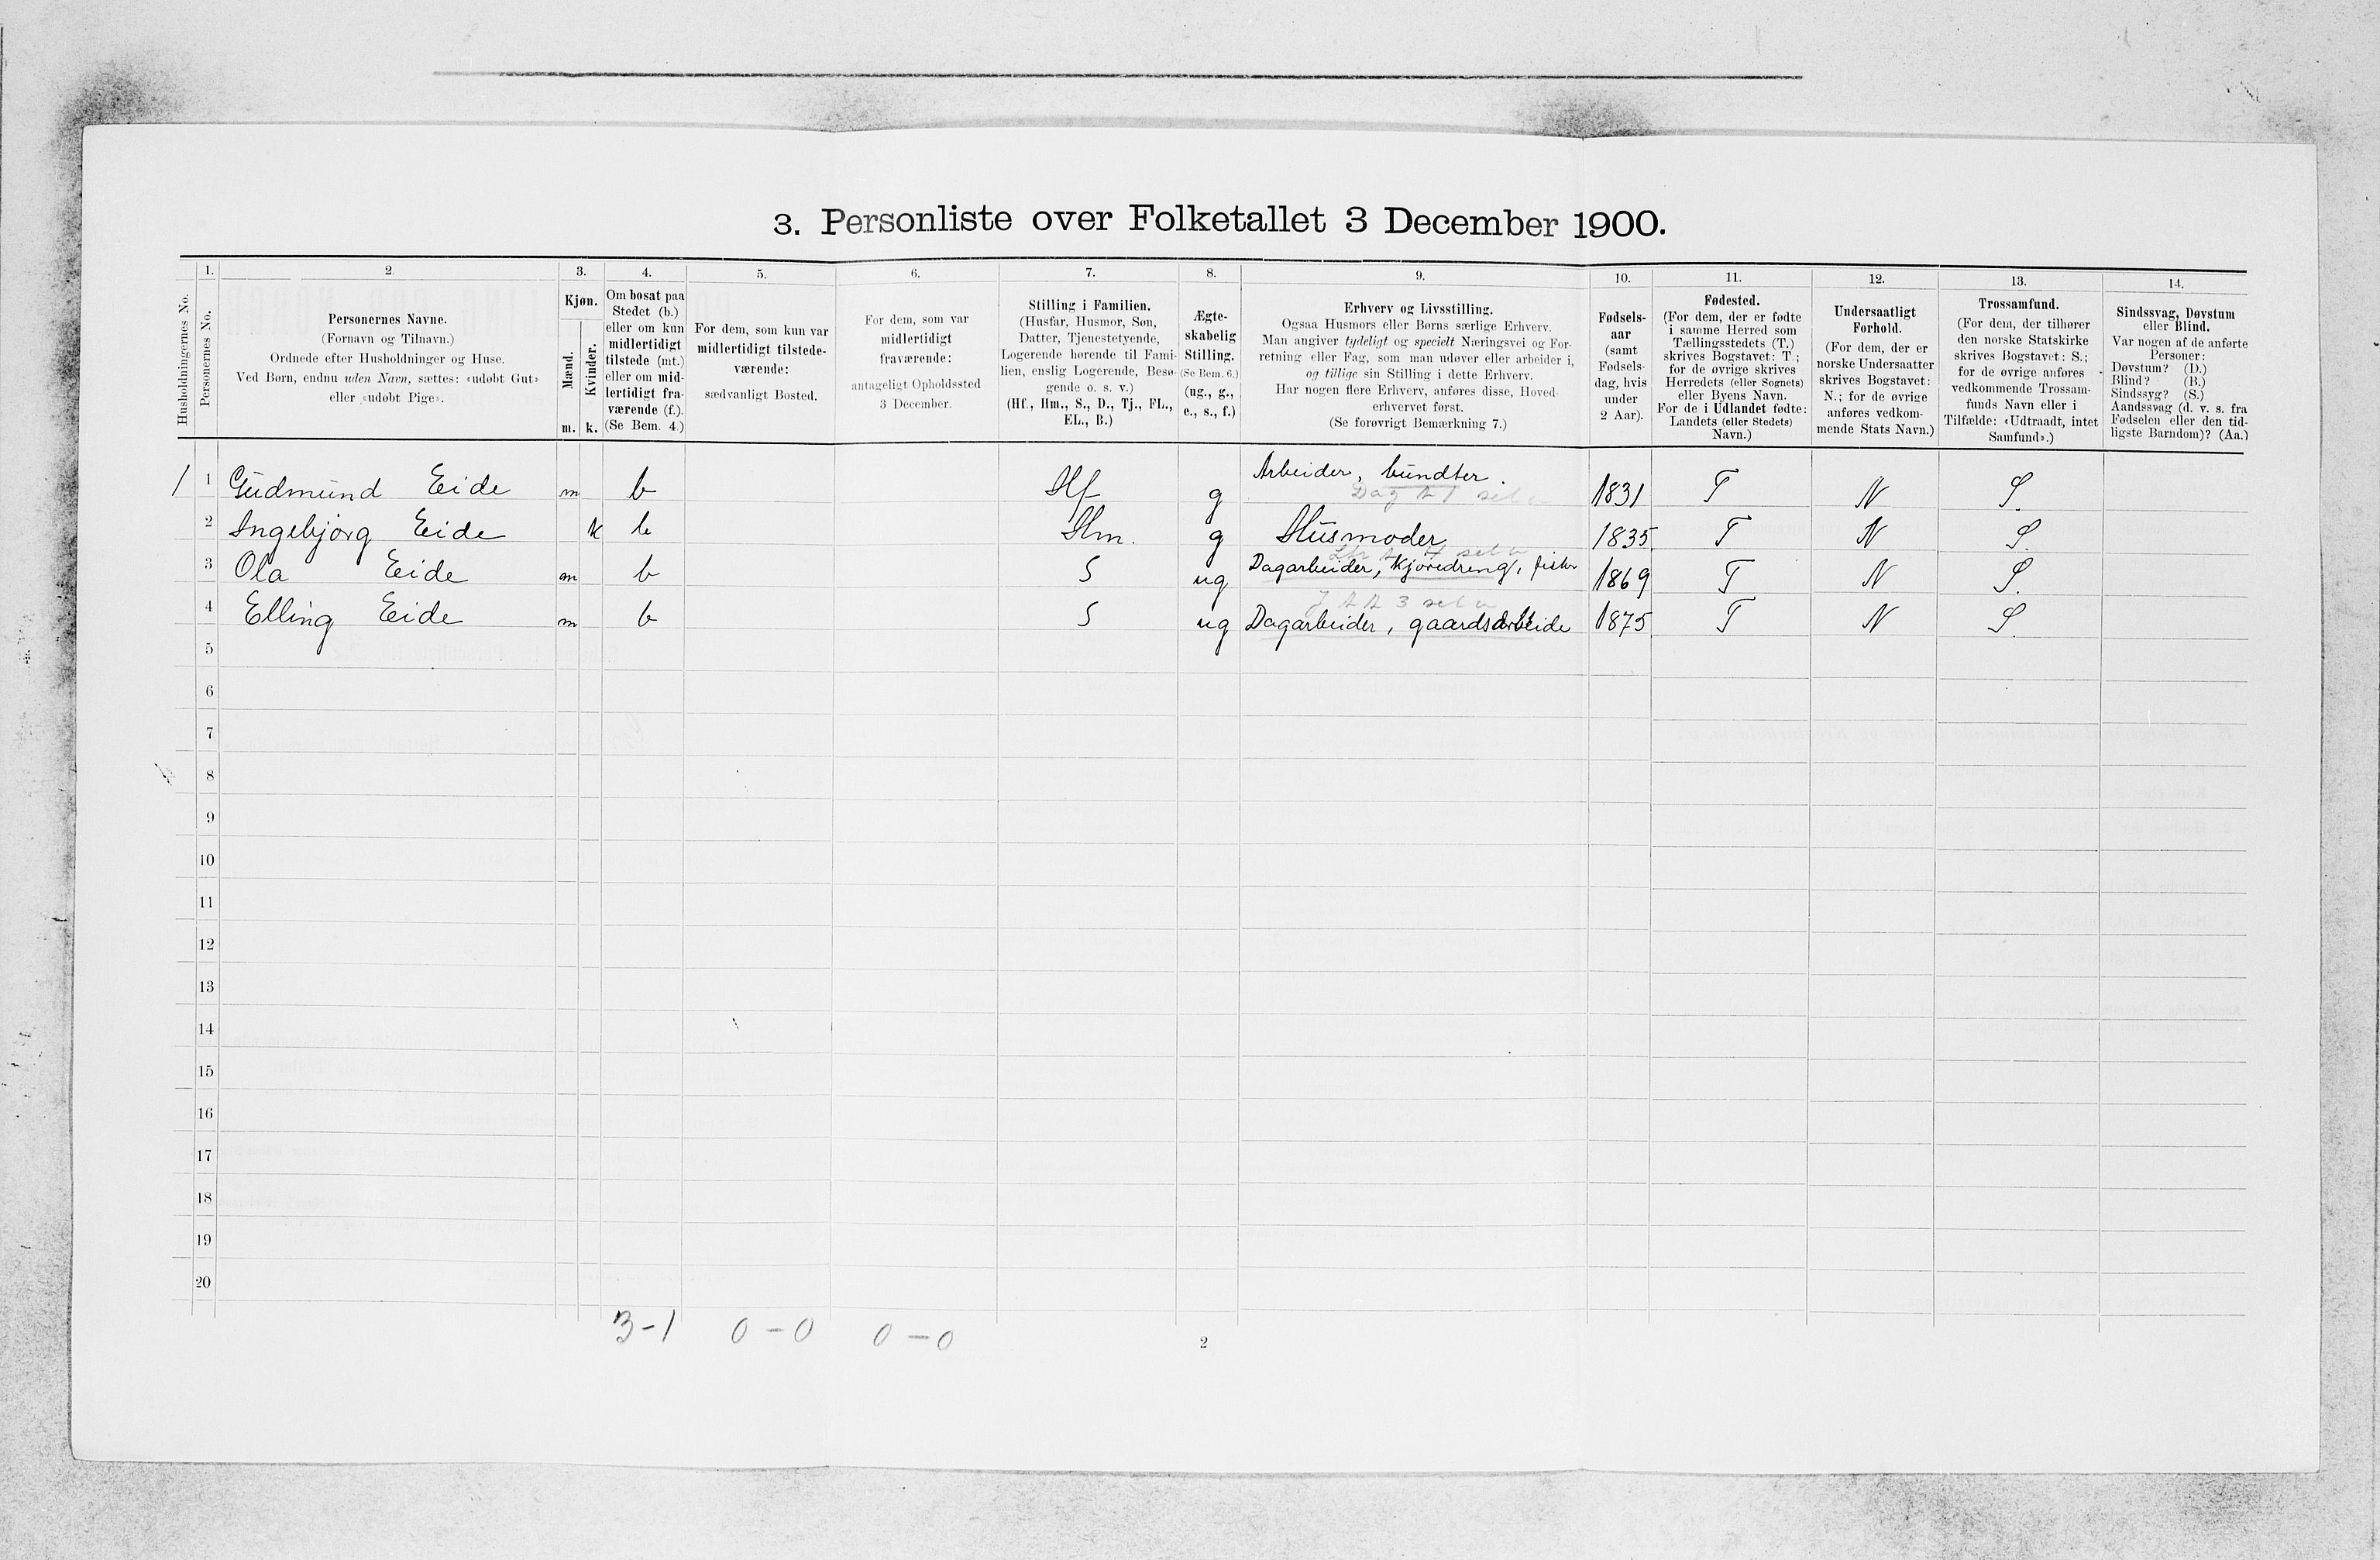 3. Personliste over Folketallet 3 December 1900.
Husholdningernes No.
1.
Personernes No.
2.
Personernes Navne.
(Fornavn og Tilnavn.)
Ordnede efter Husholdninger og Huse.
Ved Børn, endnu uden Navn, sættes: «udøbt Gut»
eller «udøbt Pige».
3.
Kjøn.
Mænd.
Kvinder.
m. k.
4.
Om bosat paa
Stedet (b.)
eller om kun
midlertidigt
tilstede (mt.)
eller om mid-
lertidigt fra-
værende (f.).
(Se Bem. 4.)
5.
For dem, som kun var
midlertidigt tilstede-
værende:
sædvanligt Bosted.
6.
For dem, som var
midlertidigt
fraværende:
antageligt Opholdssted
3 December.
7.
Stilling i Familien.
(Husfar, Husmor, Søn,
Datter, Tjenestetyende,
Logerende hørende til Fami-
lien, enslig Logerende, Besø-
gende o. s. v.)
(Hf., Hm., S., D., Tj., FL.,
EL., B.)
8.
Ægte-
skabelig
Stilling.
(Se Bem. 6.)
(ug., g.,
e., s., f.)
9.
Erhverv og Livsstilling.
Ogsaa Husmors eller Børns særlige Erhverv.
Man angiver tydeligt og specielt Næringsvei og For-
retning eller Fag, som man udøver eller arbeider i,
og tillige sin Stilling i dette Erhverv.
Har nogen flere Erhverv, anføres disse, Hoved-
erhvervet først.
(Se forøvrigt Bemærkning 7.)
10.
Fødsels-
aar
(samt
Fødsels-
dag, hvis
under
2 Aar).
11.
Fødested.
(For dem, der er fødte
i samme Herred som
Tællingsstedets (T.)
skrives Bogstavet: T.;
for de øvrige skrives
Herredets (eller Sognets)
eller Byens Navn.
For de i Udlandet fødte:
Landets (eller Stedets)
Navn.)
12.
Undersaatligt
Forhold.
(For dem, der er
norske Undersaatter
skrives Bogstavet:
N.; for de øvrige
anføres vedkom-
mende Stats Navn.)
13.
Trossamfund.
(For dem, der tilhører
den norske Statskirke
skrives Bogstavet: S.;
for de øvrige anføres
vedkommende Trossam-
funds Navn eller i
Tilfælde: «Udtraadt, intet
Samfund».)
14.
Sindssvag, Døvstum
eller Blind.
Var nogen af de anførte
Personer:
Døvstum? (D.)
Blind? (B.)
Sindssyg? (S.)
Aandssvag (d. v. s. fra
Fødselen eller den tid-
ligste Barndom)? (Aa.)
1 1 Gudmund Eide m b Hf g Arbeider, bundter. 1831 T N S.
2 Ingebjørg Eide k b Hm. g Husmoder 1835 T N S.
3 Ola Eide m b S ug Dagarbeider, Kjøredreng, fisker 1869 T N S.
4 Elling Eide m b S ug Dagarbeider, gaardsarbeide 1875 T N S.
5
6
7
8
9
10
11
12
13
14
15
16
17
18
19
20
3-1 0-0 0-0
2